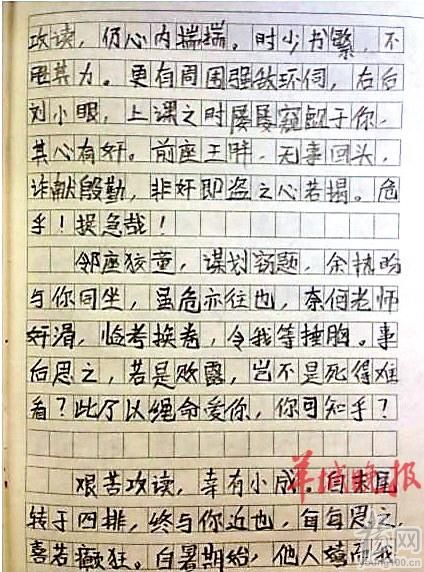 攻读，仍心内揣揣。时少书繁，不
胜其力。更有周围强敌环伺，右后
刘小眼，上课之时屡屡窥觎于你，
其心有奸。前座王胖，无事回头，
诈献殷勤，非奸即盗之心若揭。危
乎！捉急哉！
邻座狡童，谋划窃题，余执的
与你同坐，虽危亦往也，奈何老师
奸滑，临考换卷，令我等捶胸。事
后思之，若是败露，岂不是死得难
看？此乃以绳命爱你，你可知乎？
艰苦攻读，幸有小成。自末尾
转于四排，终与你近也，每每思之，
喜若癫狂。自暑期始，他人嬉而我
羊城晚报
young100.cn